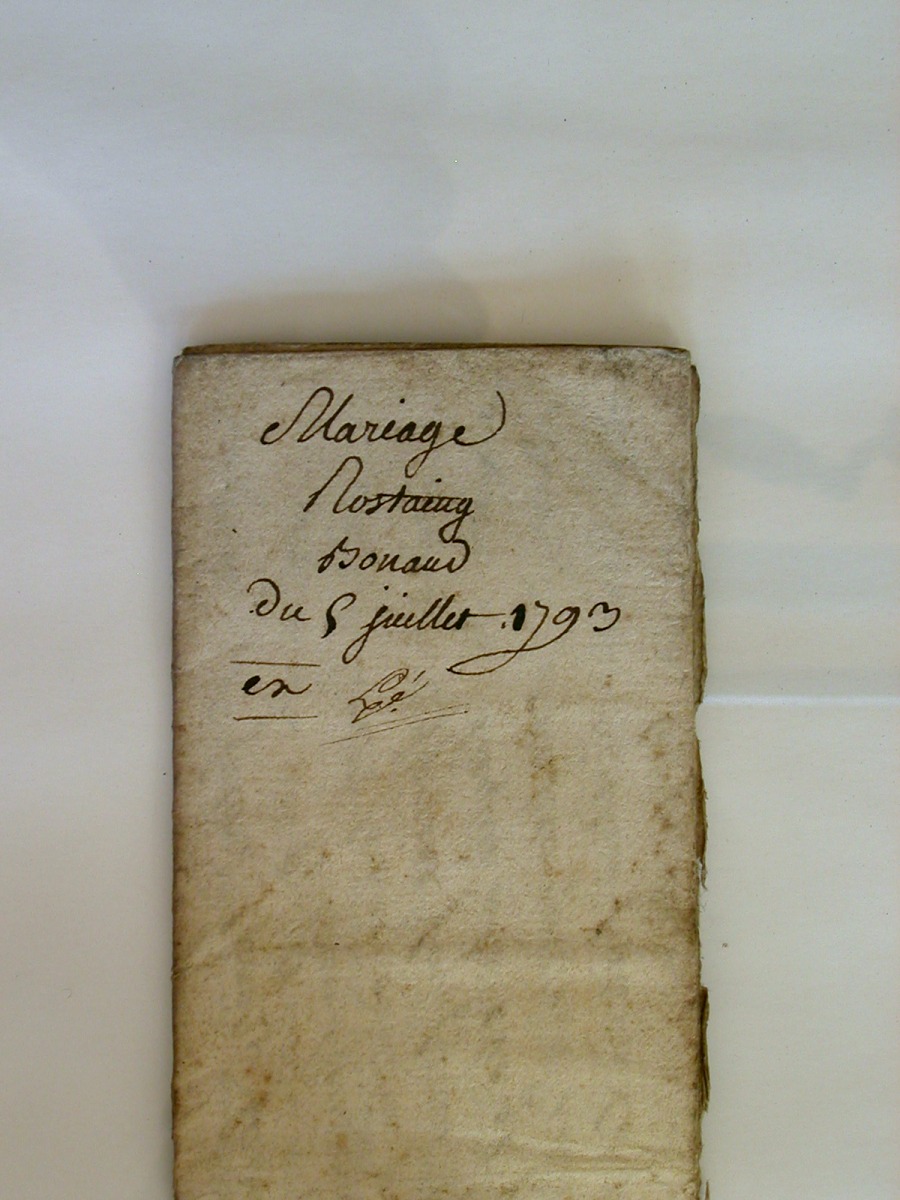 Mariage
Rostaing
Bonaud
Du 5 juillet 1793
en